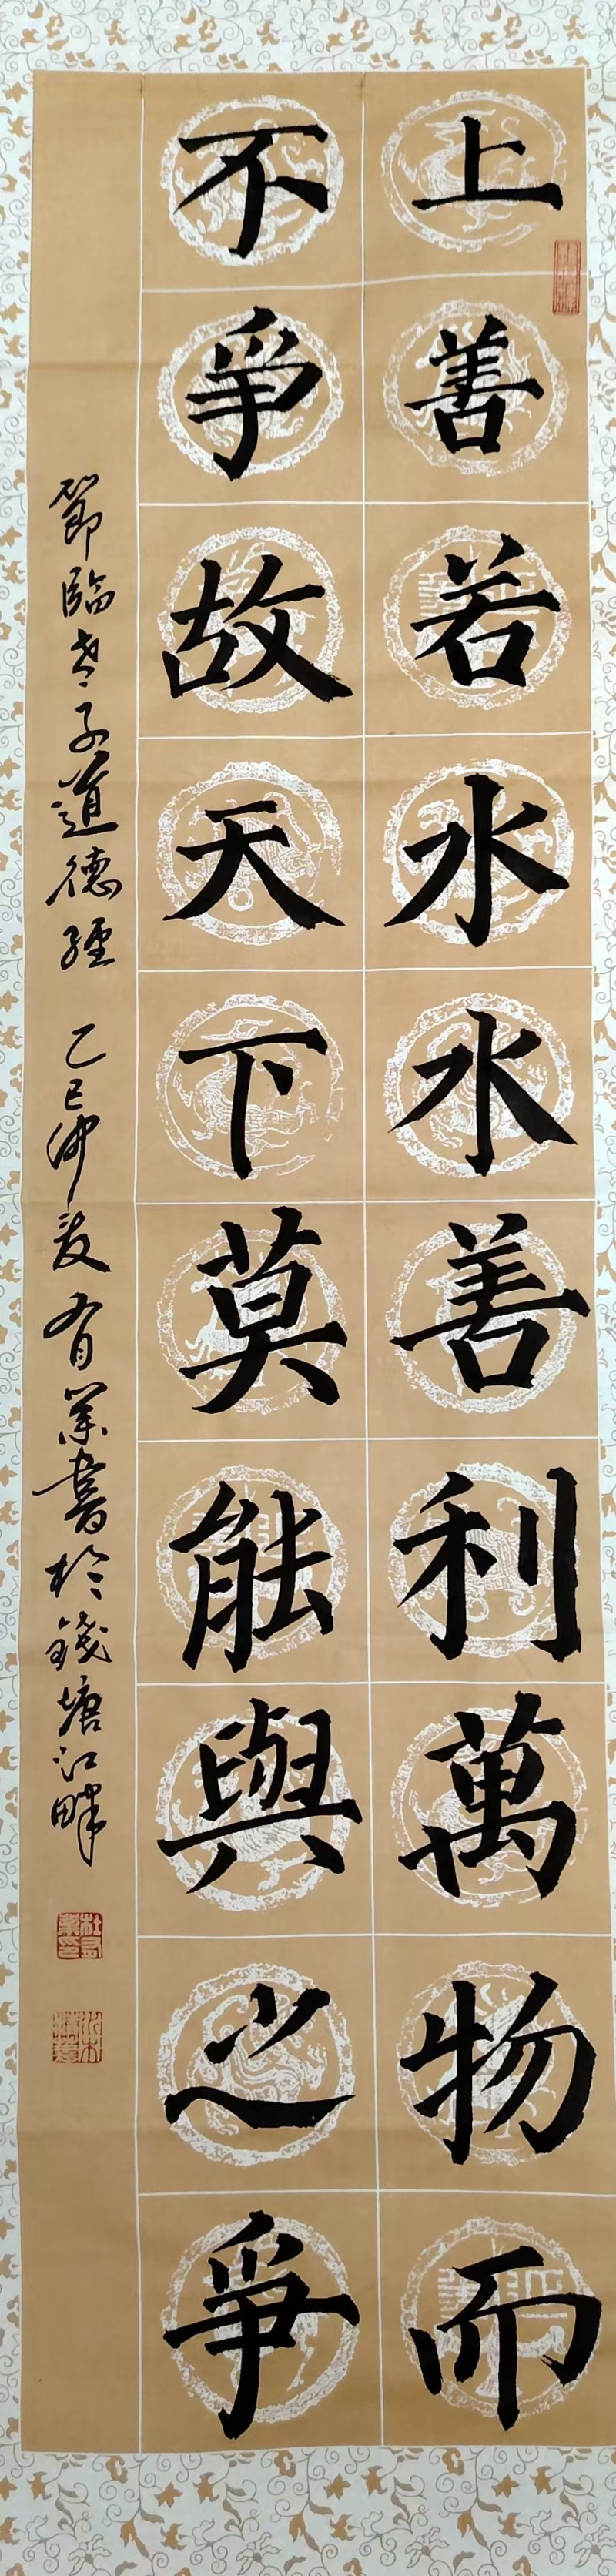 上善若水水善利萬物而
不爭故天下莫能與之爭
節臨老子道德經 乙巳仲夏 有業書於錢塘江畔
杜有業印